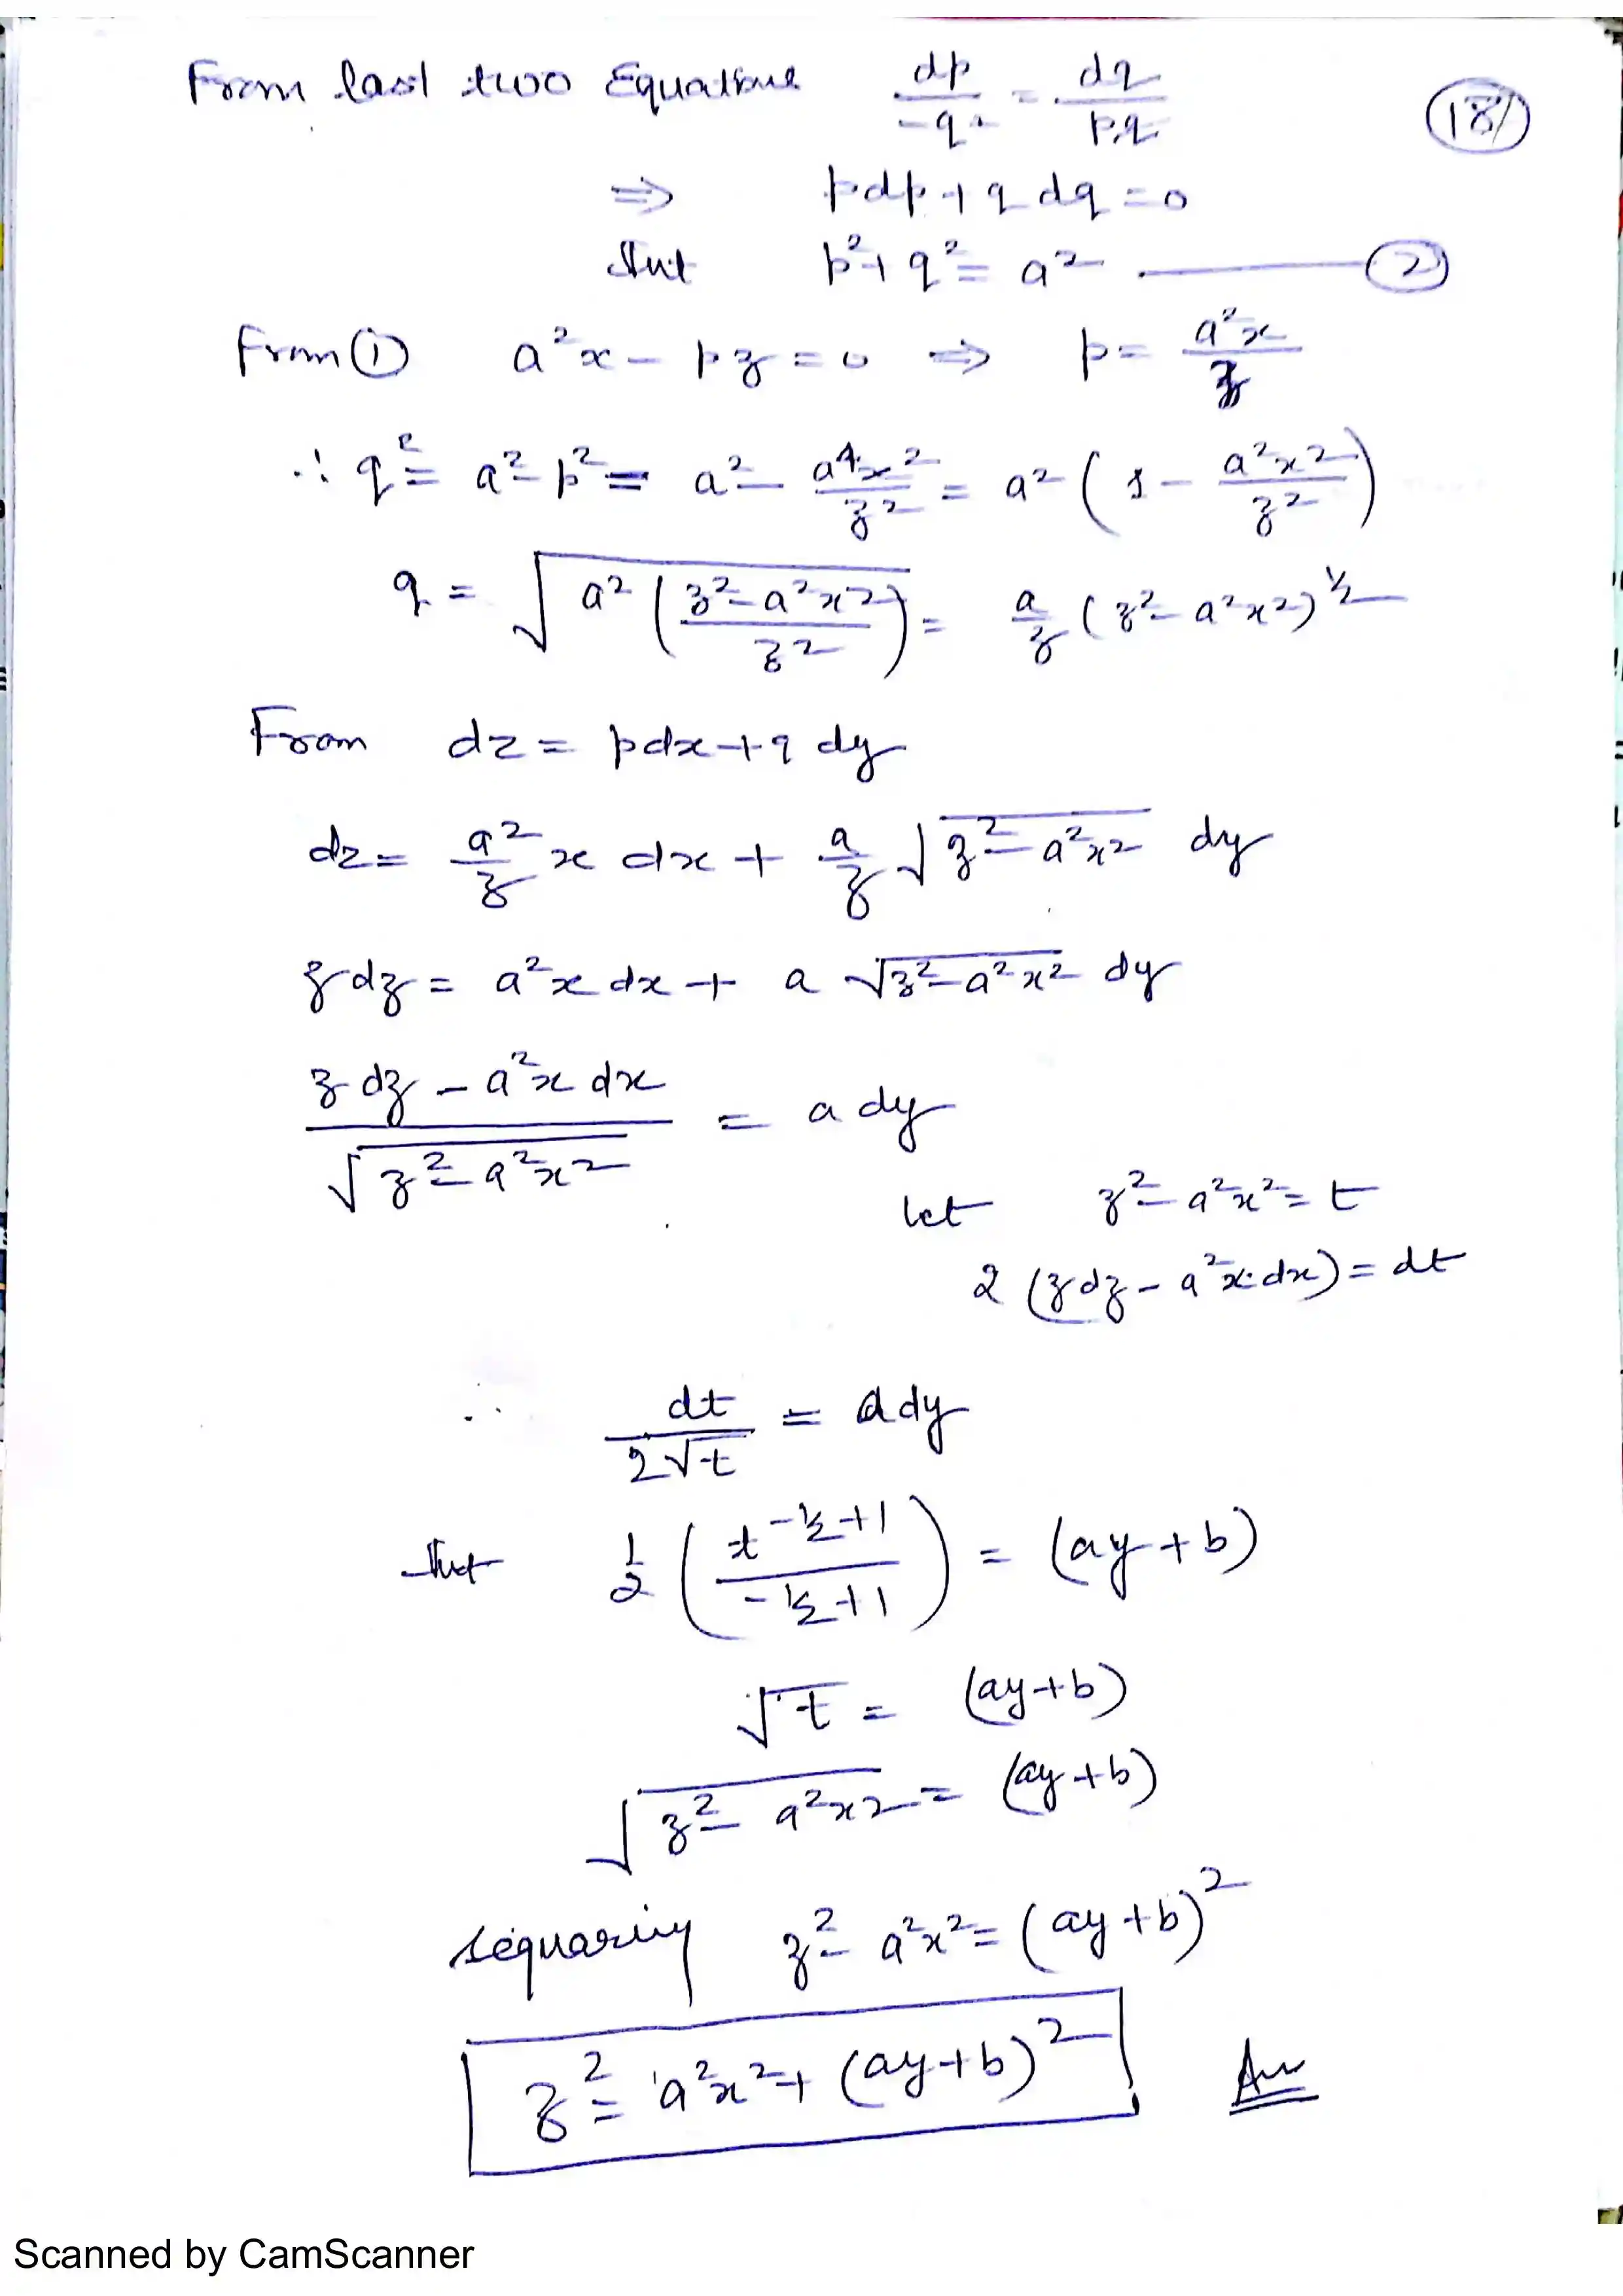 From last two Equations dp/-q² = dq/pq (18)
⇒ pdp + q dq = 0
Int p² + q² = a² — (2)
From (1) a²x - pz = 0 ⇒ p = a²x/z
∴ q² = a² - p² = a² - a⁴x²/z² = a² (1 - a²x²/z²)
q = √(a² (z² - a²x²)/z²) = a/z (z² - a²x²)^½
From dz = pdx + q dy
dz = a²/z x dx + a/z √(z² - a²x²) dy
z dz = a²x dx + a √(z² - a²x²) dy
(z dz - a²x dx)/√(z² - a²x²) = a dy
let z² - a²x² = t
2 (z dz - a²x.dx) = dt
∴ dt/2√t = a dy
Int 1/2 (t^(-½+1)/(-½+1)) = (ay + b)
√t = (ay + b)
√(z² - a²x²) = (ay + b)
sequaring z² - a²x² = (ay + b)²
z² = a²x² + (ay + b)² Ans
Scanned by CamScanner